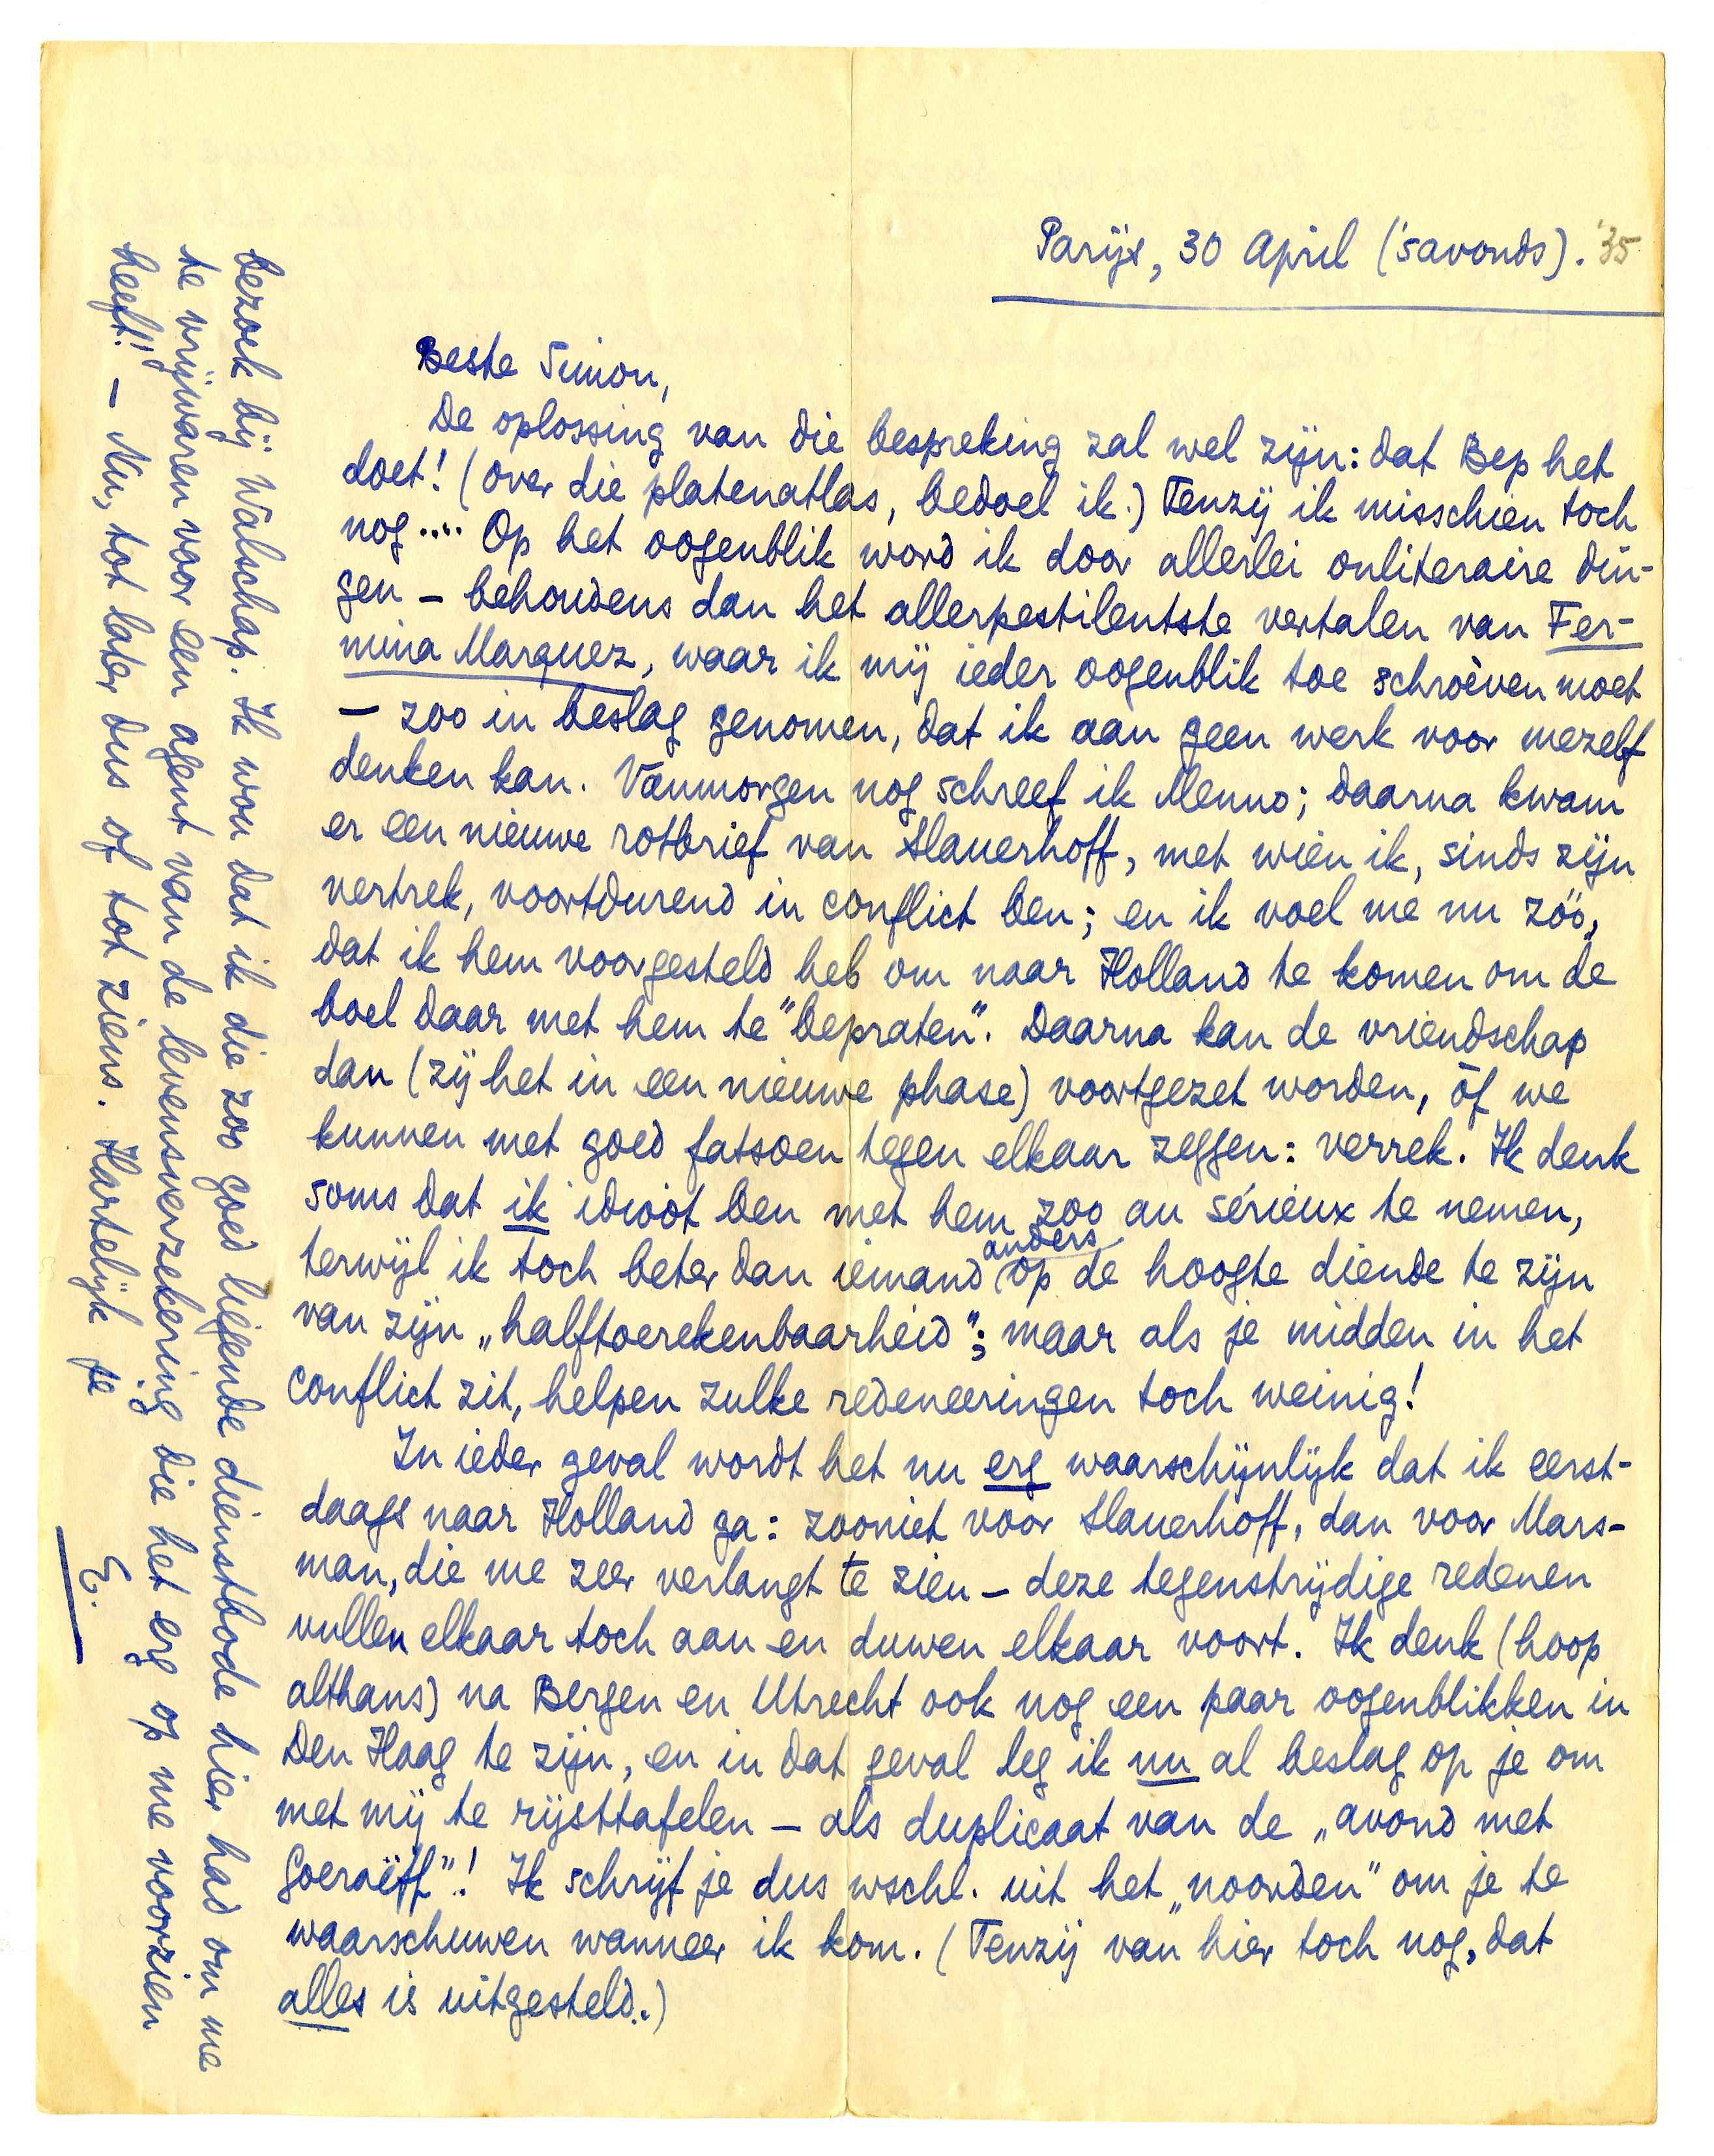 Parijs, 30 April ('s avonds). '35
Beste Simon,
De oplossing van die bespreking zal wel zijn: dat Bep het
doet! (Over die platenatlas, bedoel ik.) Tenzij ik misschien toch
nog.... Op het oogenblik word ik door allerlei onliteraire din-
gen – behoudens dan het allerpestilentste vertalen van Fer-
mina Marquez, waar ik mij ieder oogenblik toe schroeven moet
– zoo in beslag genomen, dat ik aan geen werk voor mezelf
denken kan. Vanmorgen nog schreef ik Menno; daarna kwam
er een nieuwe rotbrief van Slauerhoff, met wien ik, sinds zijn
vertrek, voortdurend in conflict ben; en ik voel me nu zóó,
dat ik hem voorgesteld heb om naar Holland te komen om de
boel daar met hem te "bepraten". Daarna kan de vriendschap
dan (zij het in een nieuwe phase) voortgezet worden, òf we
kunnen met goed fatsoen tegen elkaar zeggen: verrek. Ik denk
soms dat ik idioot ben met hem zoo au sérieux te nemen,
terwijl ik toch beter dan iemand anders op de hoogte diende te zijn
van zijn „halftoerekenbaarheid"; maar als je midden in het
conflict zit, helpen zulke redeneeringen toch weinig!
In ieder geval wordt het nu erg waarschijnlijk dat ik eerst-
daags naar Holland ga: zooniet voor Slauerhoff, dan voor Mars-
man, die me zeer verlangt te zien – deze tegenstrijdige redenen
vullen elkaar toch aan en duwen elkaar voort. Ik denk (hoop
althans) na Bergen en Utrecht ook nog een paar oogenblikken in
Den Haag te zijn, en in dat geval leg ik nu al beslag op je om
met mij te rijsttafelen – als duplicaat van de „avond met
Goeraëff"! Ik schrijf je dus wschl. uit het „noorden" om je te
waarschuwen wanneer ik kom. (Tenzij van hier toch nog, dat
alles is uitgesteld.)
bezoek bij Walschap. Ik wou dat ik die zoo goed liegende dienstbode hier had om me
te vrijwaren voor een agent van de levensverzekering die het erg op me voorzien
heeft! – Nu, tot later dus of tot ziens. Hartelijk je
E.